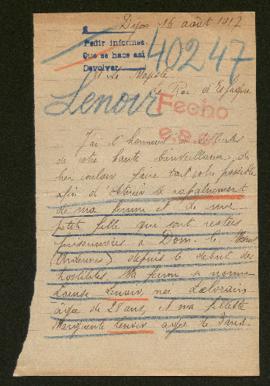 Dijon 16 août 1917
Pedir informes
Que se hace asi
Devolver
40247
Sa Majesté
Le Roi d'Espagne
Lenoir
Fecho
J'ai l'honneur de
de votre haute bienveillance, de
bien vouloir faire tout votre possible
afin d'obtenir le rapatriement
de ma femme et de ma
petite fille qui sont restées
prisonnières à Dom le
(Ardennes) depuis le début des
hostilités. Ma femme se nomme
Lenoir née
âgée de 28 ans, et ma fillette
Marguerite Lenoir âgée de